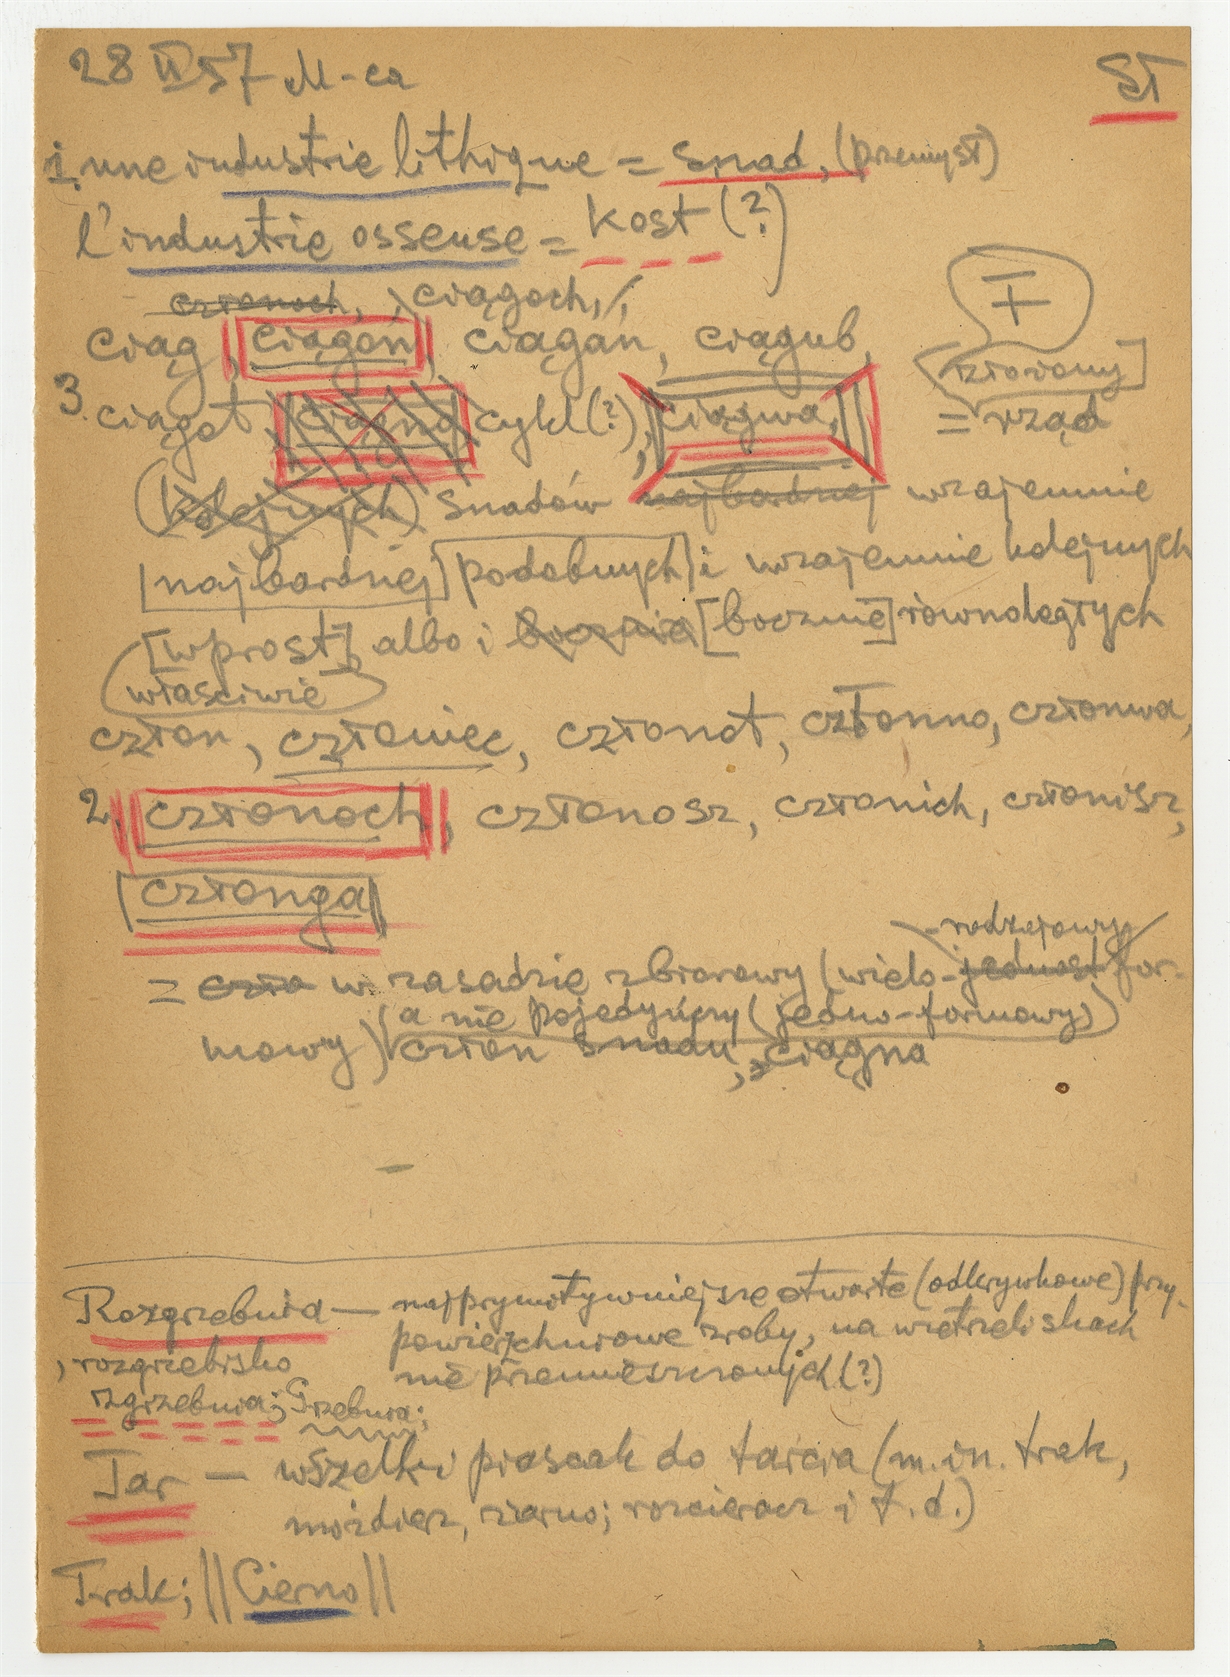 28 II 57 M-ca
SŁ
1. une industrie lithique = snad, (przemysł)
l'industrie osseuse = kost (?)
członoch, ciągoch,
ciąg, ciągoń, ciągań, ciągub,
3. ciągot, ciągno cykl (?), ciągwa,
[zbiorowy]
= rząd
(kolejnych) snadów najbardziej wzajemnie
[najbardziej] podobnych i wzajemnie kolejnych
[wprost] albo i bocznie [bocznie] równoległych
właściwie
człon, członiec, członot, członno, członwa,
2. członoch, członosz, członich, członisz,
członga
rodzajowy
= czło w zasadzie zbiorowy (wielo-jednost for-
a nie pojedyńczy (jedno-formowy)
mowy) człon snadu, ciągna
Rozgrzebnia — najprymitywniejsze otwarte (odkrywkowe) przy-
powierzchniowe zroby, na wietrzeliskach
nie przemieszczonych (?)
, rozgrzebisko
rzgrzebnia; Grzebnia;
Tar — wszelki piascak do tarcia (m.in. trak,
moździerz, ziarno; rozcieracz i t.d.)
Trak; || Cierno ||